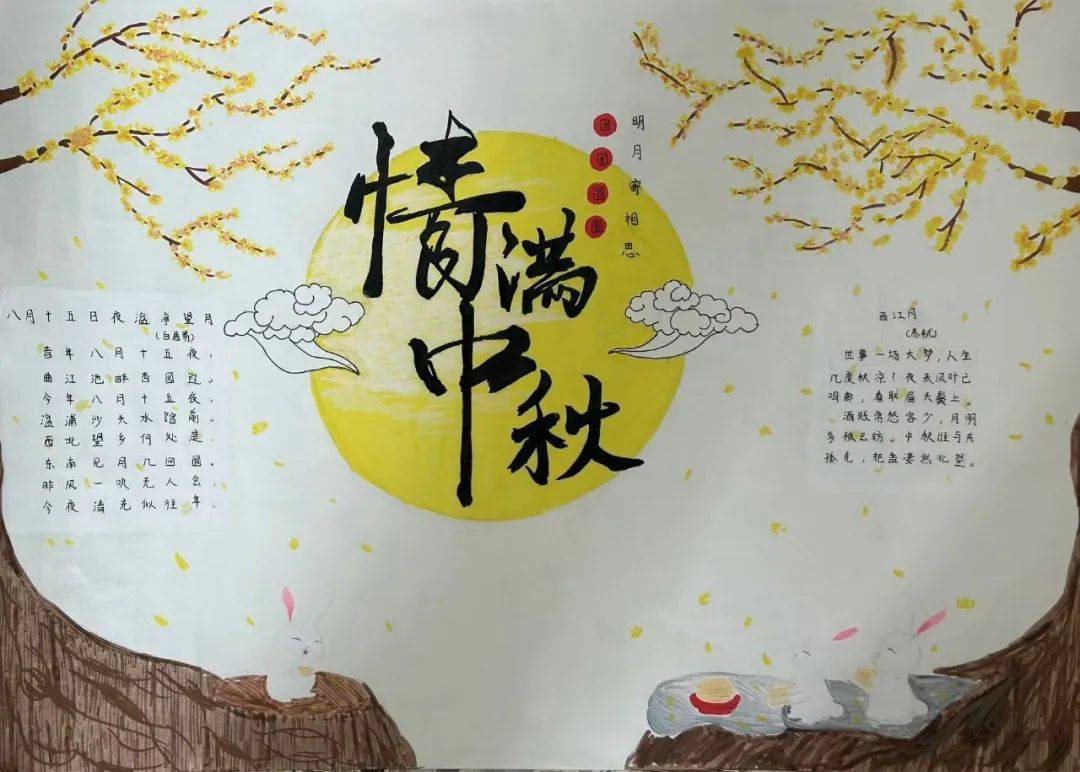 情满
中秋
明月寄相思
团团圆圆
八月十五日夜湓亭望月
(白居易)
昔年八月十五夜，
曲江池畔杏园边。
今年八月十五夜，
湓浦沙头水馆前。
西北望乡何处是，
东南见月几回圆。
昨风一吹无人会，
今夜清光似往年。
西江月
(苏轼)
世事一场大梦，人生
几度秋凉？夜来风叶已
鸣廊，看取眉头鬓上。
酒贱常愁客少，月明
多被云妨。中秋谁与共
孤光，把盏凄然北望。